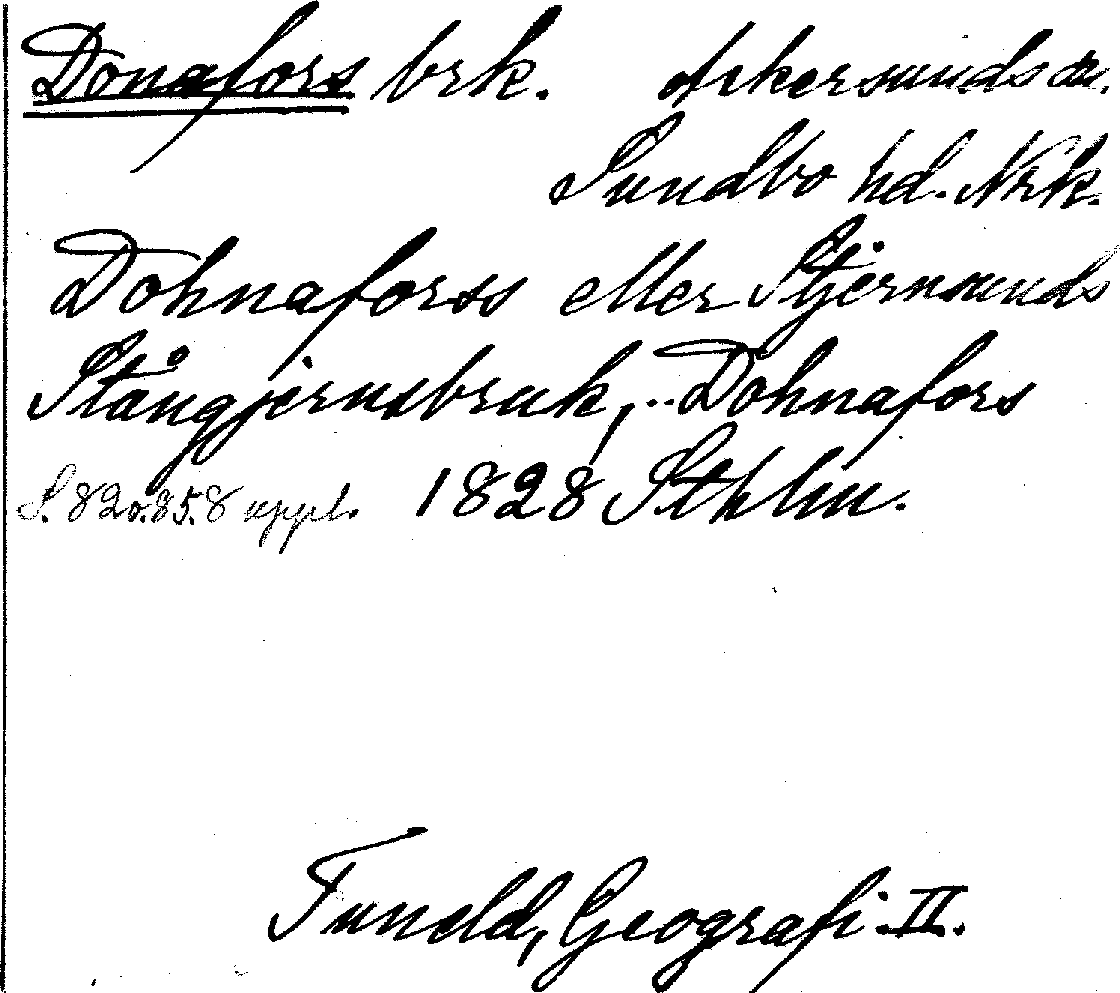 Donafors brk. Askersunds sn.
Sundbo hd. Nrk.
Dohnaforss eller Stjernsunds
Stångjernsbruk, .. Dohnafors
S. 82 o. 85. 8 uppl. 1828 Sthlm.
Tuneld, Geografi. II.